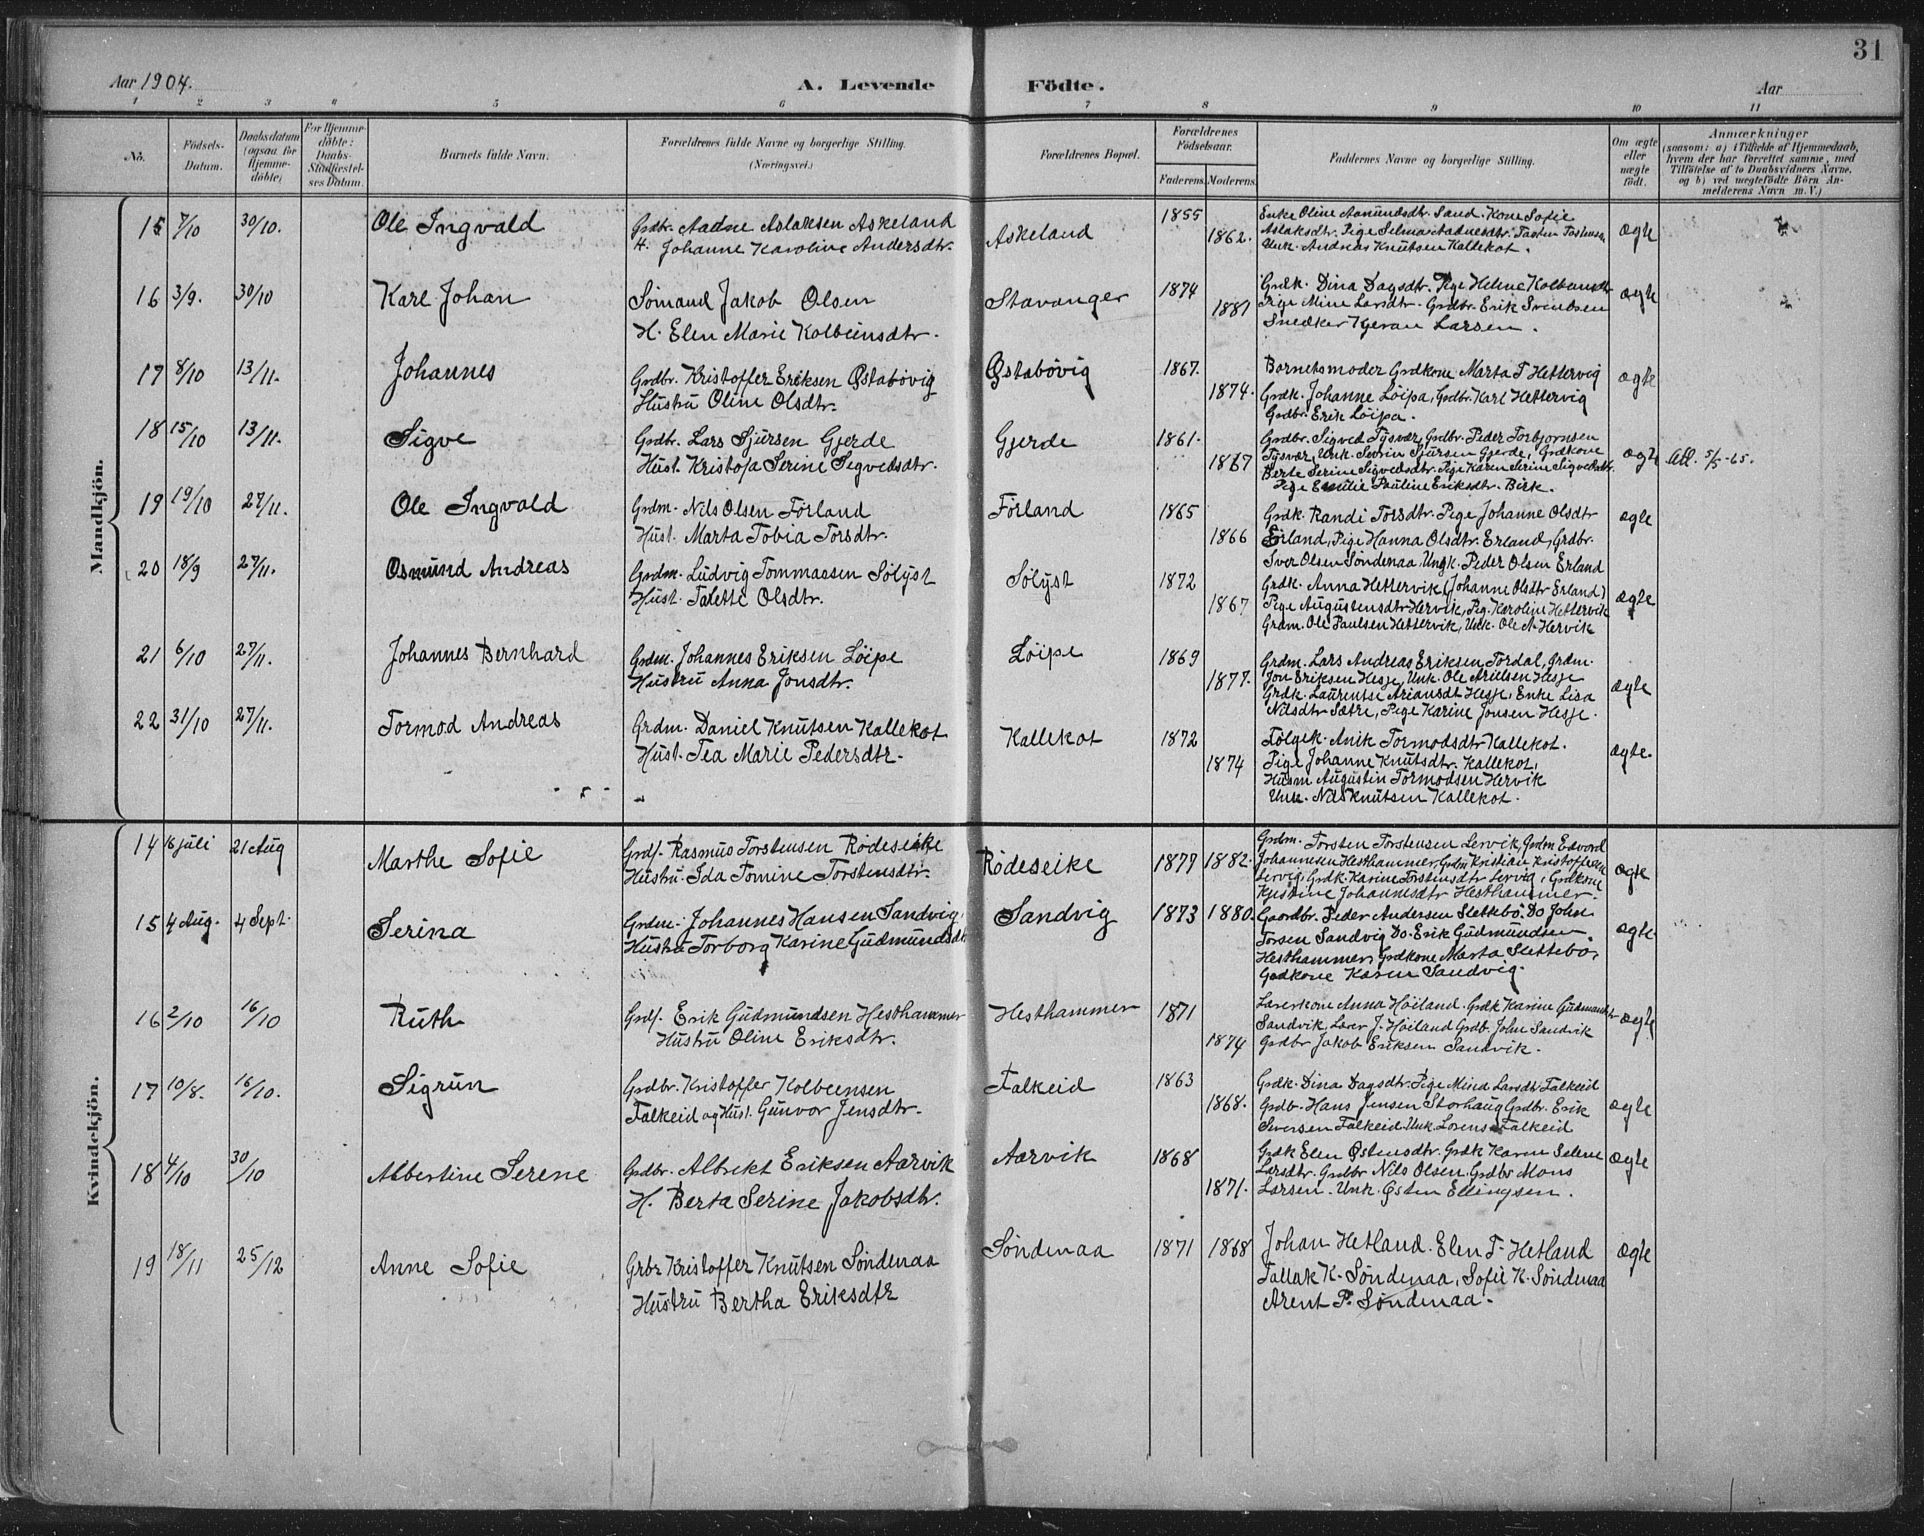 31
Aar 1904. A. Levende Födte. Aar
1 2 3 4 5 6 7 8 9 10 11
No. Födsels-Datum. Daabsdatum (ogsaa for Hjemme-döbte) For Hjemme-döbte: Daabs-Stadfæstelses Datum. Barnets fulde Navn. Forældrenes fulde Navne og borgerlige Stilling. (Næringsvei.) Forældrenes Bopæl. Forældrenes Födselsaar. Faderens. Moderens. Faddernes Navne og borgerlige Stilling. Om ægte eller uægte födt. Anmærkninger (saasom: a) i Tilfælde af Hjemmedaab, hvem der har forrettet samme, med Tilföielse af to Daabsvidners Navne, og b) ved uægtefödte Börn Anmelderens Navn m. V.)
Mandkjön.
15 7/10 30/10. Ole Ingvald Grdbr. Aadne Aslaksen Askeland Askeland 1855 Enke Oline Aamundsdtr. Sand. Kone Sofie
H. Johanne Karoline Andersdtr. 1862. Aslaksdtr. Pige Selma Aadnesdtr. ægte
Unk. Andreas Knutsen Kallekot.
16 3/9. 30/10 Karl Johan Sömand Jakob Olsen Stavanger 1874 Grdk. Dina Dagsdtr. Pige Helene Kolbensdtr ægte
H. Elen Marie Kolbeinsdtr. 1881 Pige Mine Larsdtr. Grdbr. Erik Svendsen
Snedker Kjeran Larsen.
17 8/10 13/11. Johannes Grdbr. Kristoffer Eriksen Östabövig Östabövig 1867. Barnetsmoder Grdkone Marta T Hettervig ægte
Hustru Oline Olsdtr. 1874. Grdk. Johanne Löipa, Grdbr. Karl Hettervig
Grdbr. Erik Löipa.
18 15/10 13/11. Sigve Grdbr. Lars Sjursen Gjerde Gjerde 1861. Grdbr. Sigved Tysvær, Grdbr. Peder Torbjornsen
Hust. Kristofa Serine Segvedsdtr. 1867 Tysvær, Unk. Severin Sjursen Gjerde, Grdkone ægte Att. 5/5-65.
Berte Serine Sigvedsdtr. Pige Karen Serine Sigvedsdtr.
Pige Emilie Pauline Eriksdtr. Birk.
19 19/10 27/11. Ole Ingvald Grdm. Nils Olsen Förland Förland 1865 Grdk. Randi Torsdtr. Pige Johanne Olsdtr ægte
Hust. Marta Tobia Torsdtr. 1866 Erland, Pige Hanna Olsdtr. Erland, Grdbr.
Iver Olsen Söndenaa, Ungk. Peder Olsen Erland
20 18/9 27/11. Osmund Andreas Grdm. Ludvig Tommassen Sölyst Sölyst 1872 Grdk. Anna Hettervik (Johanne Olsdtr Erland) ægte
Hust. Talette Olsdtr. 1867 Pige Augustensdtr Hervik, Pig. Karoline Hettervik
Grdm. Ole Paulsen Hettervik, Unk. Ole A. Hervik
21 6/10 27/11. Johannes Bernhard Grdm. Johannes Eriksen Löipe Löipe 1869 Grdm. Lars Andreas Eriksen Tordal, Grdm.
Hustru Anna Jonsdtr. 1877. Jon Eriksen Hesje, Unk. Ole Arielsen Hesje ægte
Grdk. Laurentse Ariansdt Hesje, Enke Lisa
Nilsdtr Sætre, Pige Karine Jonsen Hesje.
22 31/10 27/11. Tormod Andreas Grdm. Daniel Knutsen Kallekot Kallekot 1872 Fölgek. Anik Tormodsdtr Kallekot. ægte.
Hust. Tea Marie Pedersdtr. 1874 Pige Johanne Knutsdtr. Kallekot,
Husm. Augustin Tormodsen Hervik
Unk. Nils Knutsen Kallekot.
Kvindekjön.
14 16 juli 21 Aug Marthe Sofie Grdf. Rasmus Torstensen Rödeseike Rödeseike 1877 1882. Grdm. Torsten Torstensen Lervik, Grdm Edvard
Hustru Ida Tomine Torstensdtr. Johannesen Hesthammer, Grdm Kristian Kristoffersen ægte
Lervig, Grdk. Karine Torstensdtr Lervig, Grdkone
Kjestine Johannesdtr Hesthammer.
15 4 Aug. 4 Sept. Serina Grdm. Johannes Hansen Sandvig Sandvig 1873 1880. Gaardbr. Peder Andersen Slettebö. Do John
Hustru Torborg Karine Gudmundsdt Torsen Sandvig Do. Erik Gudmundsen ægte
Hesthammer, Grdkone Marta Slettebö,
Grdkone Karen Sandvig.
16 2/10 16/10 Ruth Grdf. Erik Gudmundsen Hesthammer Hesthammer 1871 Lærerkone Anna Höiland. Grdk Karine Gudmundsdtr ægte
Hustru Oline Eriksdtr. 1874 Sandvik, Lærer J. Höiland Grdb. John Sandvik
Grdbr Jakob Eriksen Sandvik.
17 10/8. 16/10. Sigrun Grdbr. Kristoffer Kolbeensen Falkeid 1863 Grdk. Dina Dagsdtr. Pige Mina Larsdtr Falkeid
Falkeid og Hust. Gunvor Jensdtr. 1868. Grdb. Hans Jensen Storhaug Grdbr. Erik ægte
Seversen Falkeid Unk. Lorens Falkeid
18 4/10 30/10 Albertine Serene Grdbr. Albrekt Eriksen Aarvik Aarvik 1868 Grdk Elen Östensdtr. Grdk Karen Selene ægte
H. Berta Serine Jakobsdtr. 1871. Larsdtr. Grdbr Nils Olsen. Grdbr Mons
Larsen. Unk. Östen Ellingsen.
19 18/11 25/12 Anne Sofie Grbr Kristoffer Knutsen Söndenaa Söndenaa 1871 1868 Johan Hetland. Elen T. Hetland ægte
Hustru Bertha Eriksdtr Tallak K. Söndenaa, Sofie K. Söndenaa
Arent P. Söndenaa.